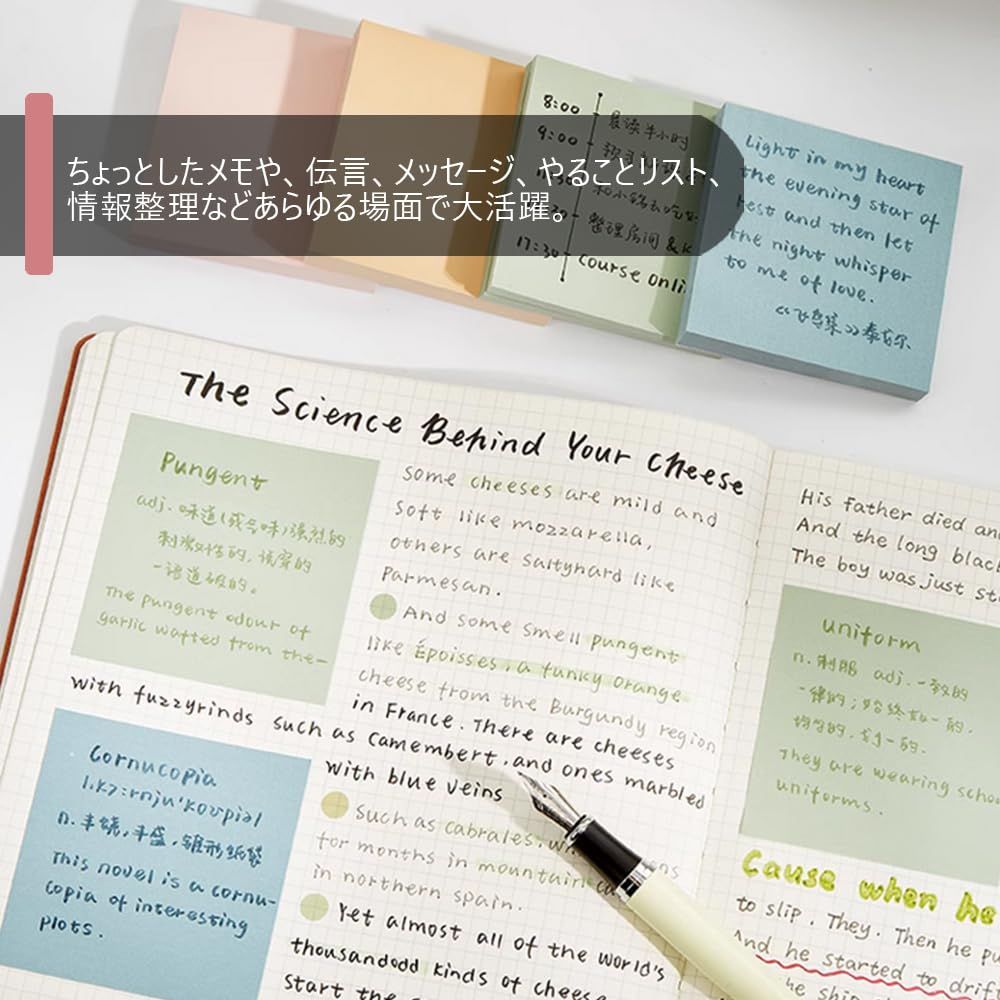 ちょっとしたメモや、伝言、メッセージ、やることリスト、
情報整理などあらゆる場面で大活躍。
8:00 晨读半小时
9:00
整理房间 &
17:30 course onli
Light in my heart
the evening star of
rest and then let
the night whisper
to me of love.
《飞鸟集》泰戈尔
The Science Behind Your Cheese
Pungent
adj. 味道(或气味)强烈的
刺激性的,说穿的
一语道破的。
The pungent odour of
garlic wafted from the-
some cheeses are mild and
soft like mozzarella,
others are saltynard like
Parmesan.
And some smell pungent
like Époisses, a funky orange
cheese from the Burgundy region
in France. There are cheeses
with fuzzyrinds such as Camembert, and ones marbled
with blue veins
Cornucopia
n. 丰饶,丰盛,锥形纸袋
This novel is a cornu-
copia of interesting
plots.
Such as cabrales, w
for months in mountain ca
in northern spain.
Yet almost all of the world's
thousandodd kinds of cheese
start the
His father died an
And the long black
The boy was just st
uniform
n. 制服 adj. 一致的
一律的;始终如一的.
均匀的.划一的.
They are wearing schoo
uniforms.
Cause when he
to slip. They. Then he pu
And he started to drif
he ship